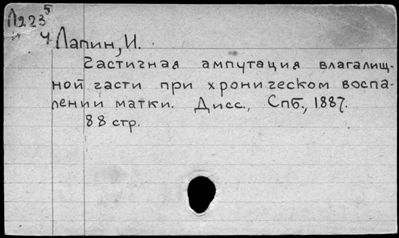 Л223⁵
ч
Лапин, И.
Частичная ампутация влагалищ-
ной части при хроническом воспа-
лении матки. Дисс., Спб., 1887.
88 стр.